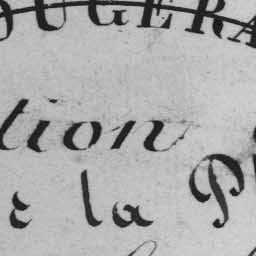 OUGERA
tion
la P